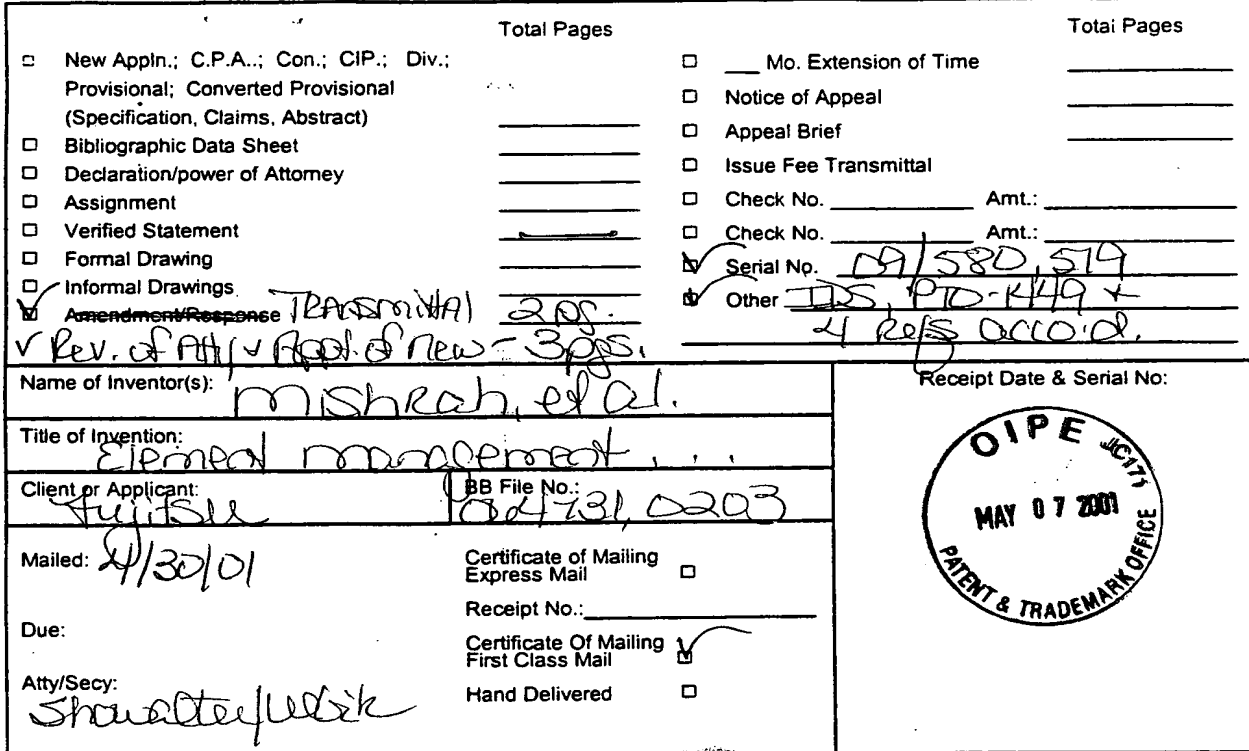 Total Pages
New Appln.; C.P.A..; Con.; CIP.; Div.;
Provisional; Converted Provisional
(Specification, Claims, Abstract)
Bibliographic Data Sheet
Declaration/power of Attorney
Assignment
Verified Statement
Formal Drawing
Informal Drawings
Amendment/Response TRANSMITTAL 2 pg.
Rev. of Atty & Appt. of new - 3pgs.
Total Pages
___ Mo. Extension of Time
Notice of Appeal
Appeal Brief
Issue Fee Transmittal
Check No. Amt.:
Check No. Amt.:
Serial No. 09/580,579
Other IDS, PTO-1449 +
4 Refs
Name of Inventor(s): Mishrah, et al.
Title of Invention:
Element management...
Client or Applicant:
Fujitsu
BB File No.:
064731.0203
Mailed: 4/30/01
Due:
Atty/Secy:
Showalter/
Certificate of Mailing
Express Mail
Receipt No.:
Certificate Of Mailing
First Class Mail
Hand Delivered
Receipt Date & Serial No:
OIPE JC171
MAY 07 2001
PATENT & TRADEMARK OFFICE